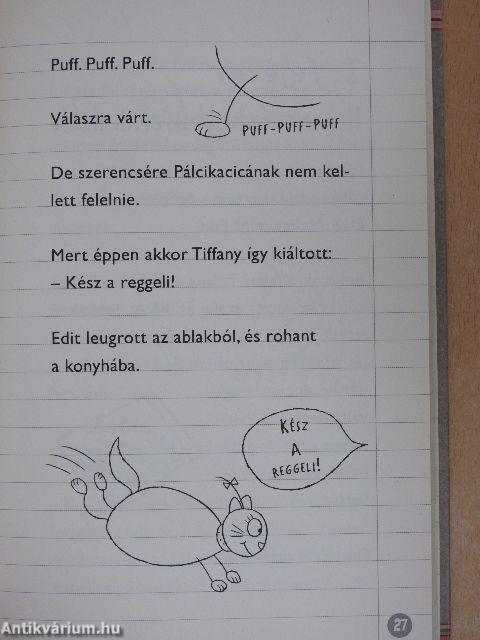 Puff. Puff. Puff.
Válaszra várt.
PUFF-PUFF-PUFF
De szerencsére Pálcikacicának nem kel-
lett felelnie.
Mert éppen akkor Tiffany így kiáltott:
– Kész a reggeli!
Edit leugrott az ablakból, és rohant
a konyhába.
KÉSZ
A
REGGELI!
27
Antikvárium.hu